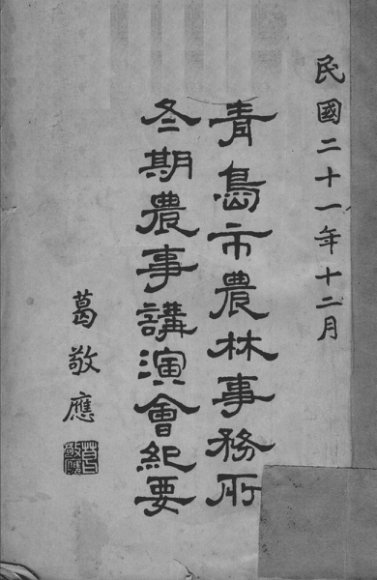 民國二十一年十二月
青島市農林事務所
冬期農事講演會紀要
葛敬應